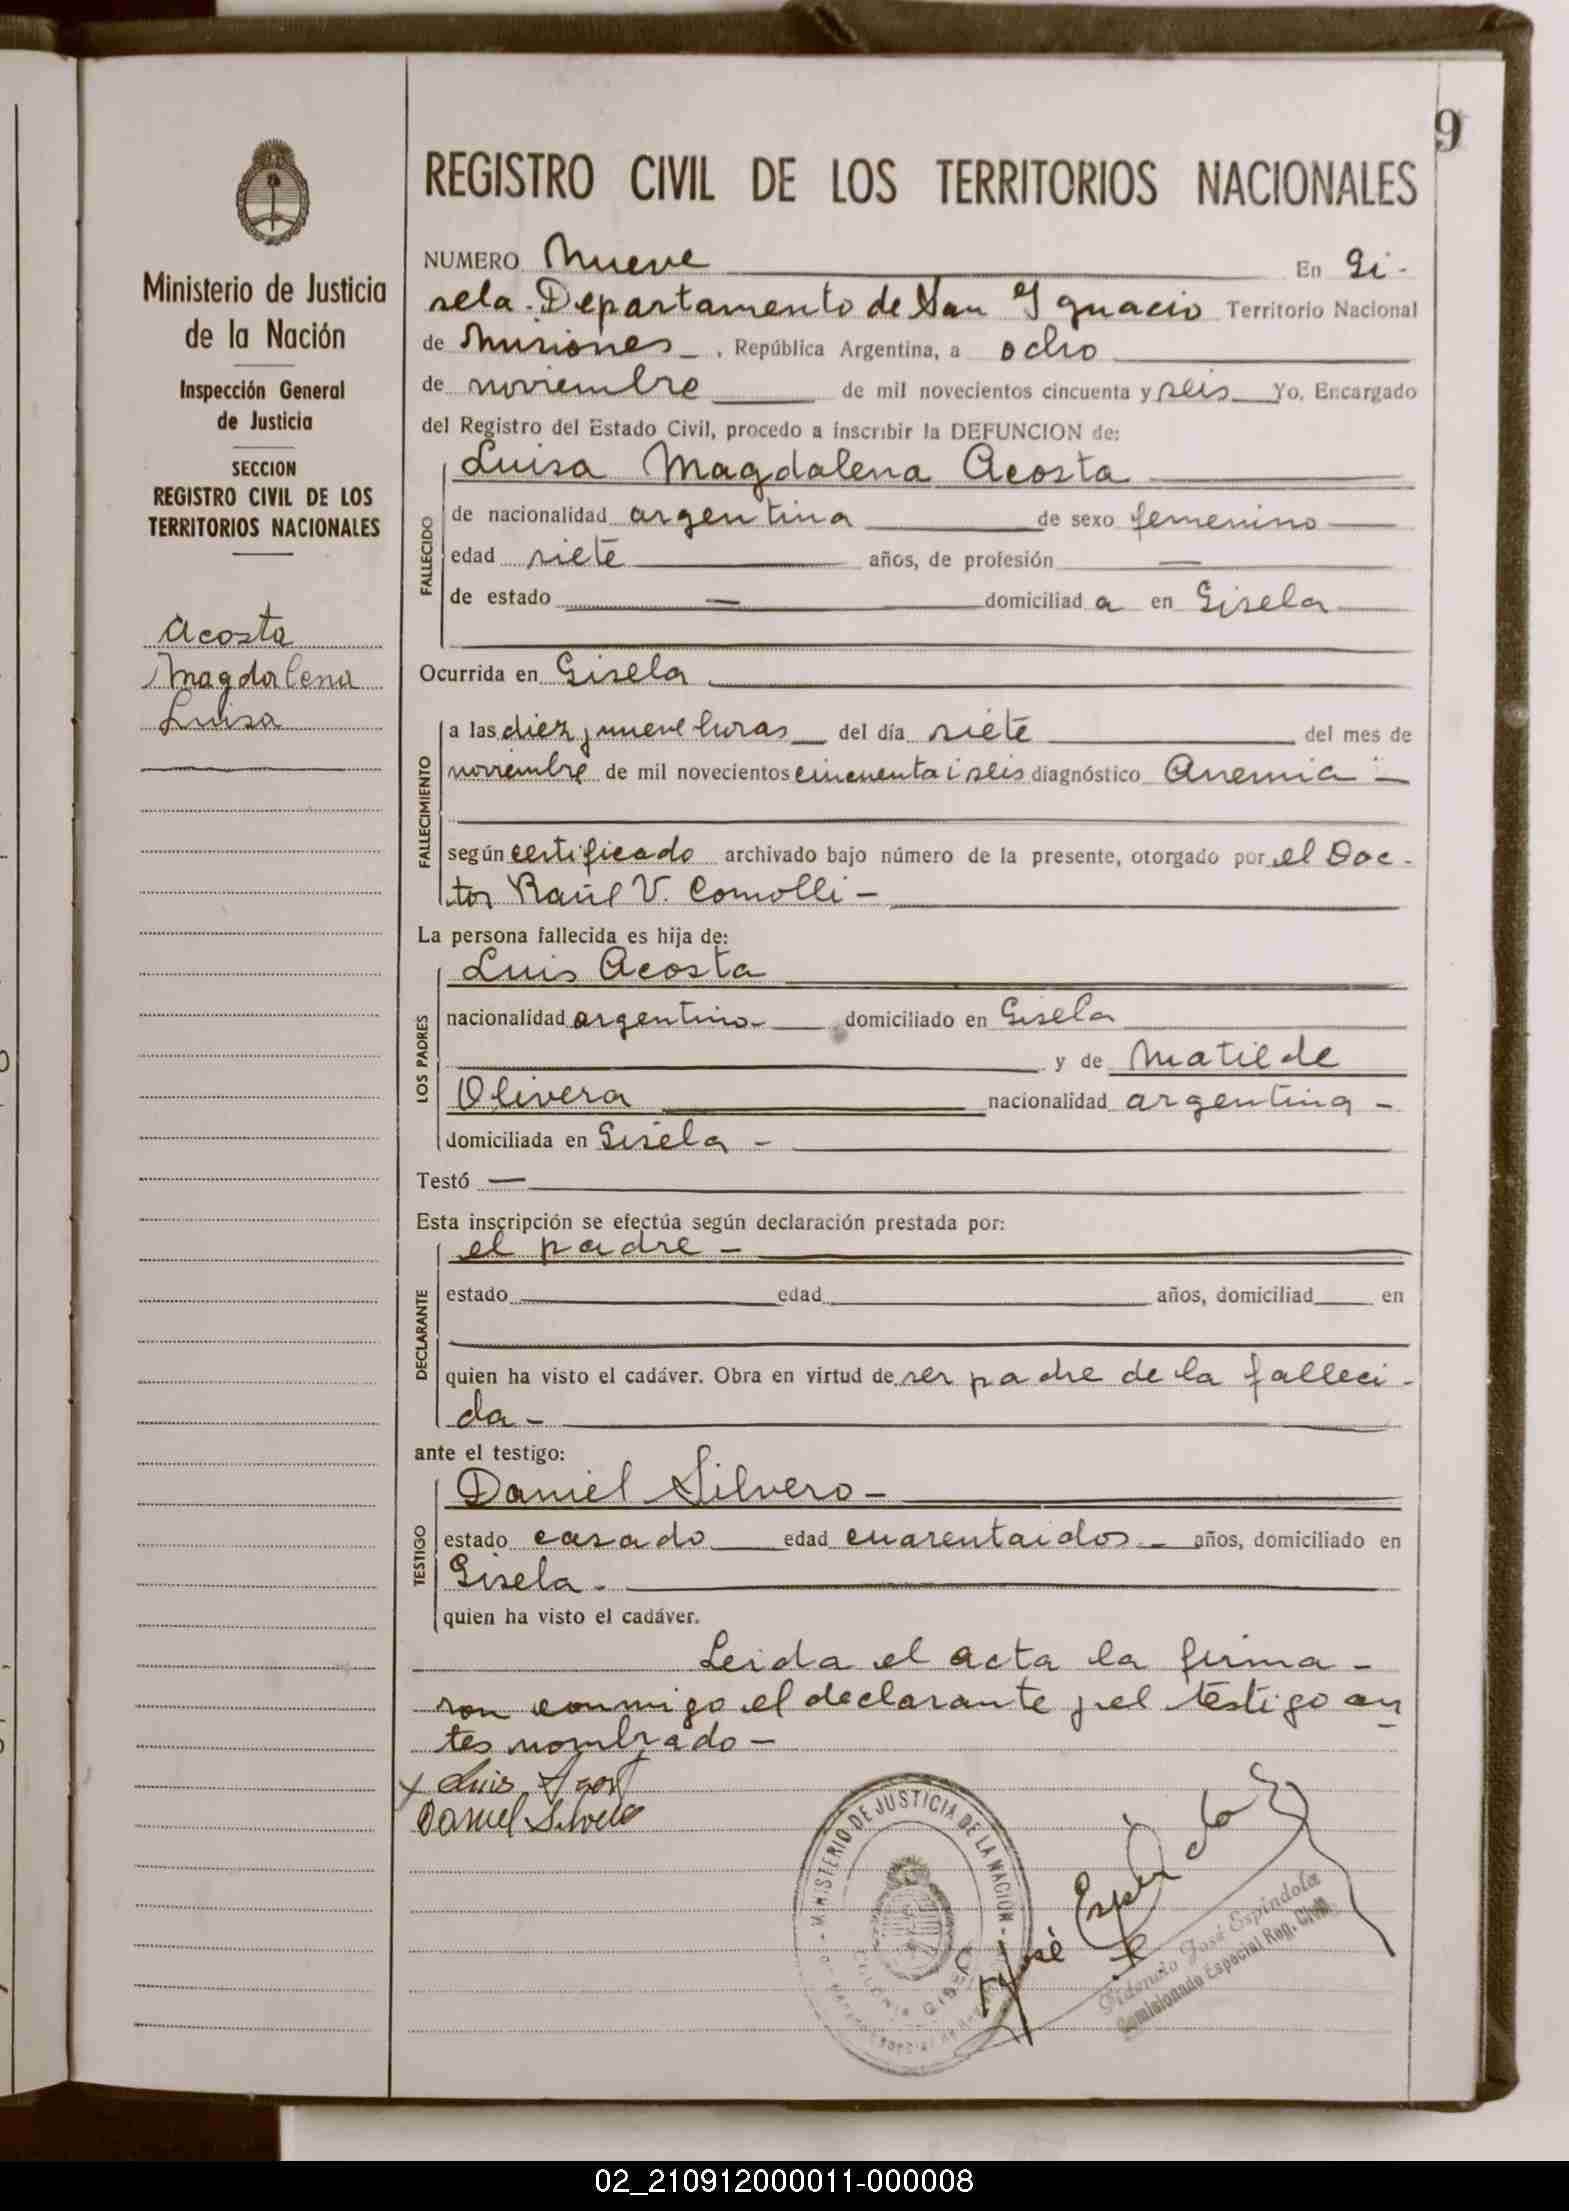 9
REGISTRO CIVIL DE LOS TERRITORIOS NACIONALES
Ministerio de Justicia
de la Nación
Inspección General
de Justicia
SECCION
REGISTRO CIVIL DE LOS
TERRITORIOS NACIONALES
Acosta
Magdalena
Luisa
NUMERO Nueve En Gi-
sela-Departamento de San Ygnacio Territorio Nacional
de Misiones, República Argentina, a ocho
de noviembre de mil novecientos cincuenta y seis Yo, Encargado
del Registro del Estado Civil, procedo a inscribir la DEFUNCION de:
FALLECIDO
Luisa Magdalena Acosta
de nacionalidad argentina de sexo femenino
edad siete años, de profesión —
de estado — domiciliad a en Gisela
Ocurrida en Gisela
FALLECIMIENTO
a las diez y nueve horas del día siete del mes de
noviembre de mil novecientos cincuenta i seis diagnóstico Anemia -
según certificado archivado bajo número de la presente, otorgado por el Doc-
tor Raúl V. Comolli -
La persona fallecida es hija de:
LOS PADRES
Luis Acosta
nacionalidad argentino domiciliado en Gisela
y de Matilde
Olivera nacionalidad argentina -
domiciliada en Gisela -
Testó —
Esta inscripción se efectúa según declaración prestada por:
DECLARANTE
el padre -
estado edad años, domiciliad en
quien ha visto el cadáver. Obra en virtud de ser padre de la falleci-
da -
ante el testigo:
TESTIGO
Daniel Silvero -
estado casado edad cuarentaidos - años, domiciliado en
Gisela -
quien ha visto el cadáver.
Leida el acta la firma-
ron conmigo el declarante y el testigo an
tes nombrado -
x Luis Acost
Daniel Silvero
MINISTERIO DE JUSTICIA DE LA NACION
COLONIA GISELA
José Espíndola
José Espíndola
Comisionado Especial Reg. Civil
02_210912000011-000008